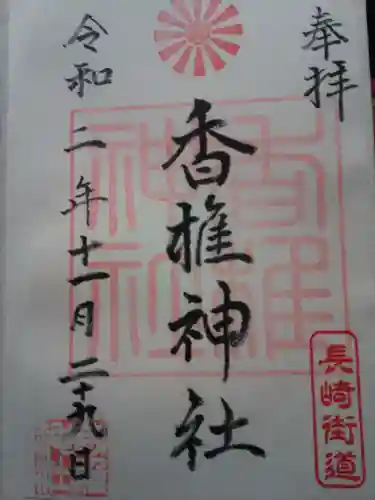 奉拝
長崎街道
香椎神社
令和二年十一月二十九日